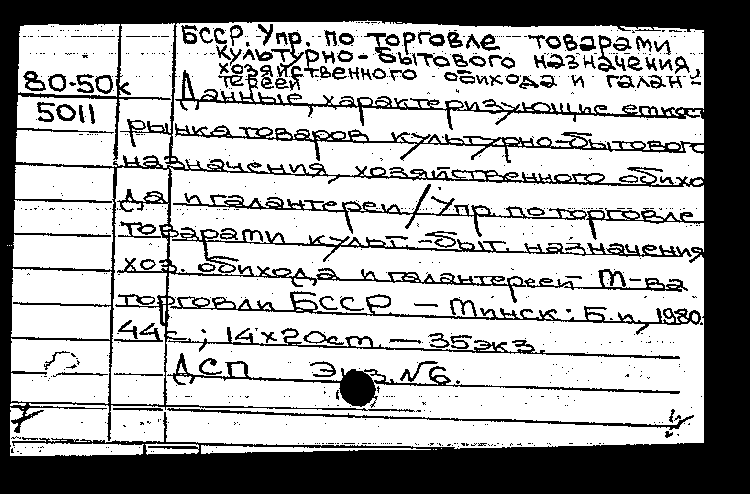 БССР. Упр. по торговле товарами
культурно-бытового назначения,
хозяйственного обихода и галан-
тереей
80-50к
5011
Данные, характеризующие емкост
рынка товаров культурно-бытового
назначения, хозяйственного обихо
да и галантереи / Упр. по торговле
товарами культ.-быт. назначения
хоз. обихода и галантереей М-ва
торговли БССР — Минск: Б.и., 1980.
44с.; 14х20см. — 35экз.
ДСП Экз. №6.